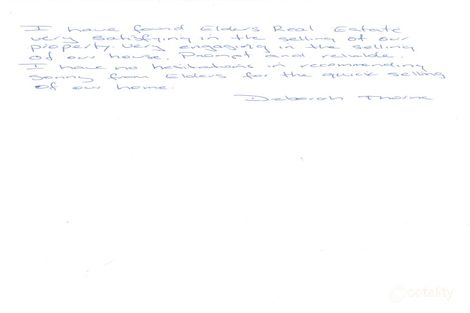 I have found Elders Real Estate
very satisfying in the selling of our
property. Very engaging in the selling
of our house. Prompt and reliable.
I have no hesitations in recommending
Sonny from Elders for the quick selling
of our home.
Deborah Thorne
cotality